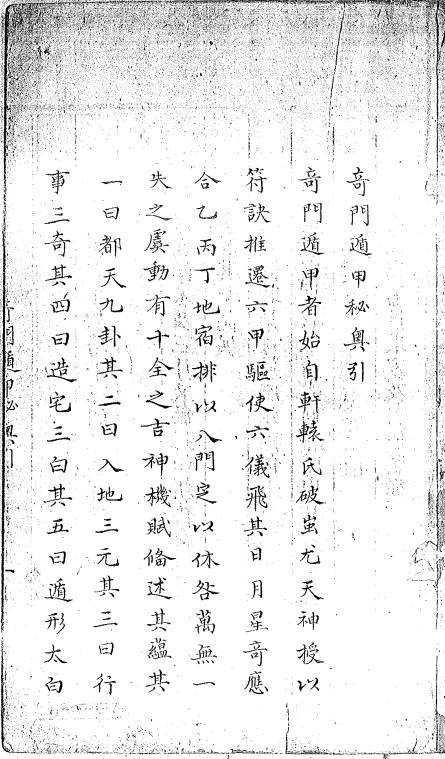 奇門遁甲秘奧引
奇門遁甲者始自軒轅氏破蚩尤天神授以
符訣推遷六甲驅使六儀飛其日月星奇應
合乙丙丁地宿排以八門定以休咎萬無一
失之虞動有十全之吉神機賦俻述其蘊其
一曰都天九卦其二曰入地三元其三曰行
事三奇其四曰造宅三白其五曰遁形太白
奇門遁甲秘奧引
一